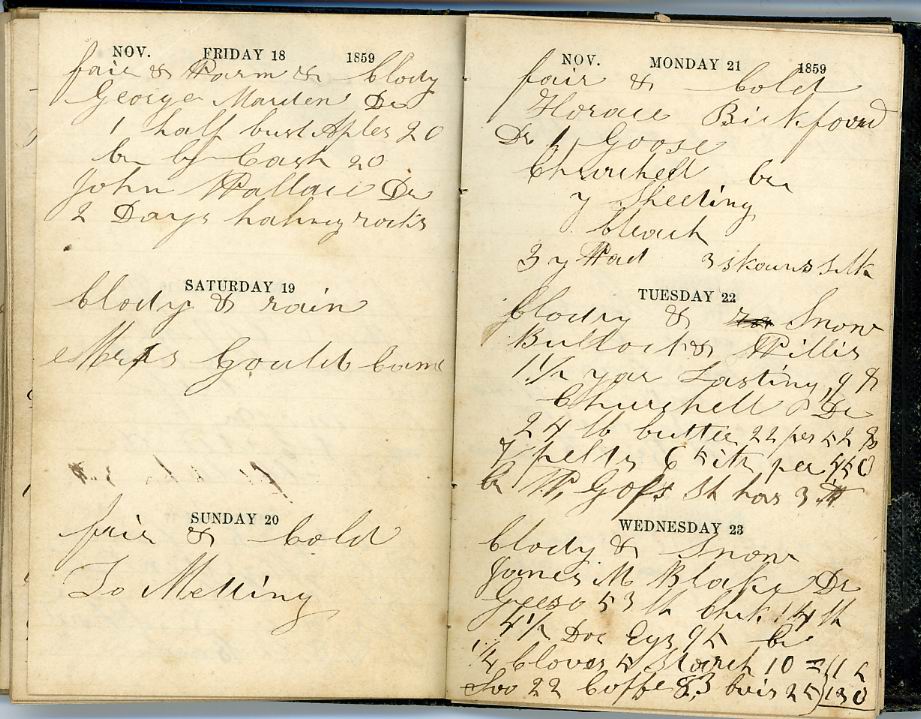 NOV. FRIDAY 18 1859
fair & Warm & clody
George Marden Dr
1 half bus Aples 20
Cr by Cash 20
John Wallace Dr
2 Days haling rocks
SATURDAY 19
clody & rain
Mrs Gould came
SUNDAY 20
fair & Cold
To Meeting
NOV. MONDAY 21 1859
fair & Cold
Horace Bickford
Dr 1 Goose
Churchell Cr
7 Sheeting
bleach
3 y Wad 3 skouns silk
TUESDAY 22
clody & Snow
Bullock & Willis
1 1/2 yar Lasting 9
Churchell Dr
24 lb butter 22
7 pelts 6 per
Cr W. Goss 3
WEDNESDAY 23
clody & Snow
James M Blake Dr
Geese 53 lb Chik 14 lb
4 1/2 Doz Eggs 9 Cr
1/4 Cloves 5 Starch 10
22 Coffe 83